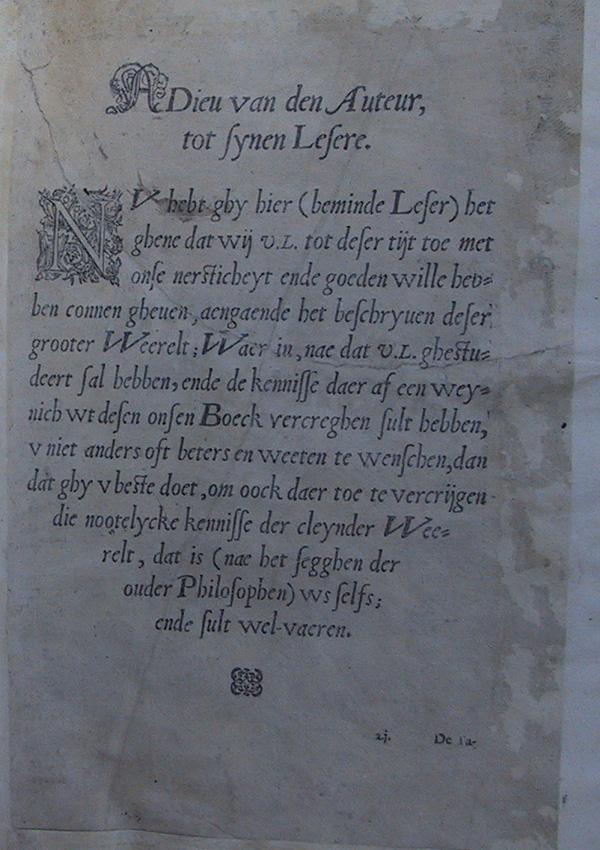 ADieu van den Auteur,
tot ſynen Leſere.
NV hebt ghy hier (beminde Leſer) het
ghene dat wij v.L. tot deſer tijt toe met
onſe nerſticheyt ende goeden wille heb=
ben connen gheuen, aengaende het beſchryuen deſer
grooter Weerelt; Waer in, nae dat v.L. gheſtu=
deert ſal hebben, ende de kenniſſe daer af een wey=
nich wt deſen onſen Boeck vercreghen ſult hebben,
v niet anders oft beters en weeten te wenſchen, dan
dat ghy v beſte doet, om oock daer toe te vercrijgen
die nootelycke kenniſſe der cleynder Wee=
relt, dat is (nae het ſegghen der
ouder Philoſophen) ws ſelfs;
ende ſult wel-vaeren.
2j. De Ta-